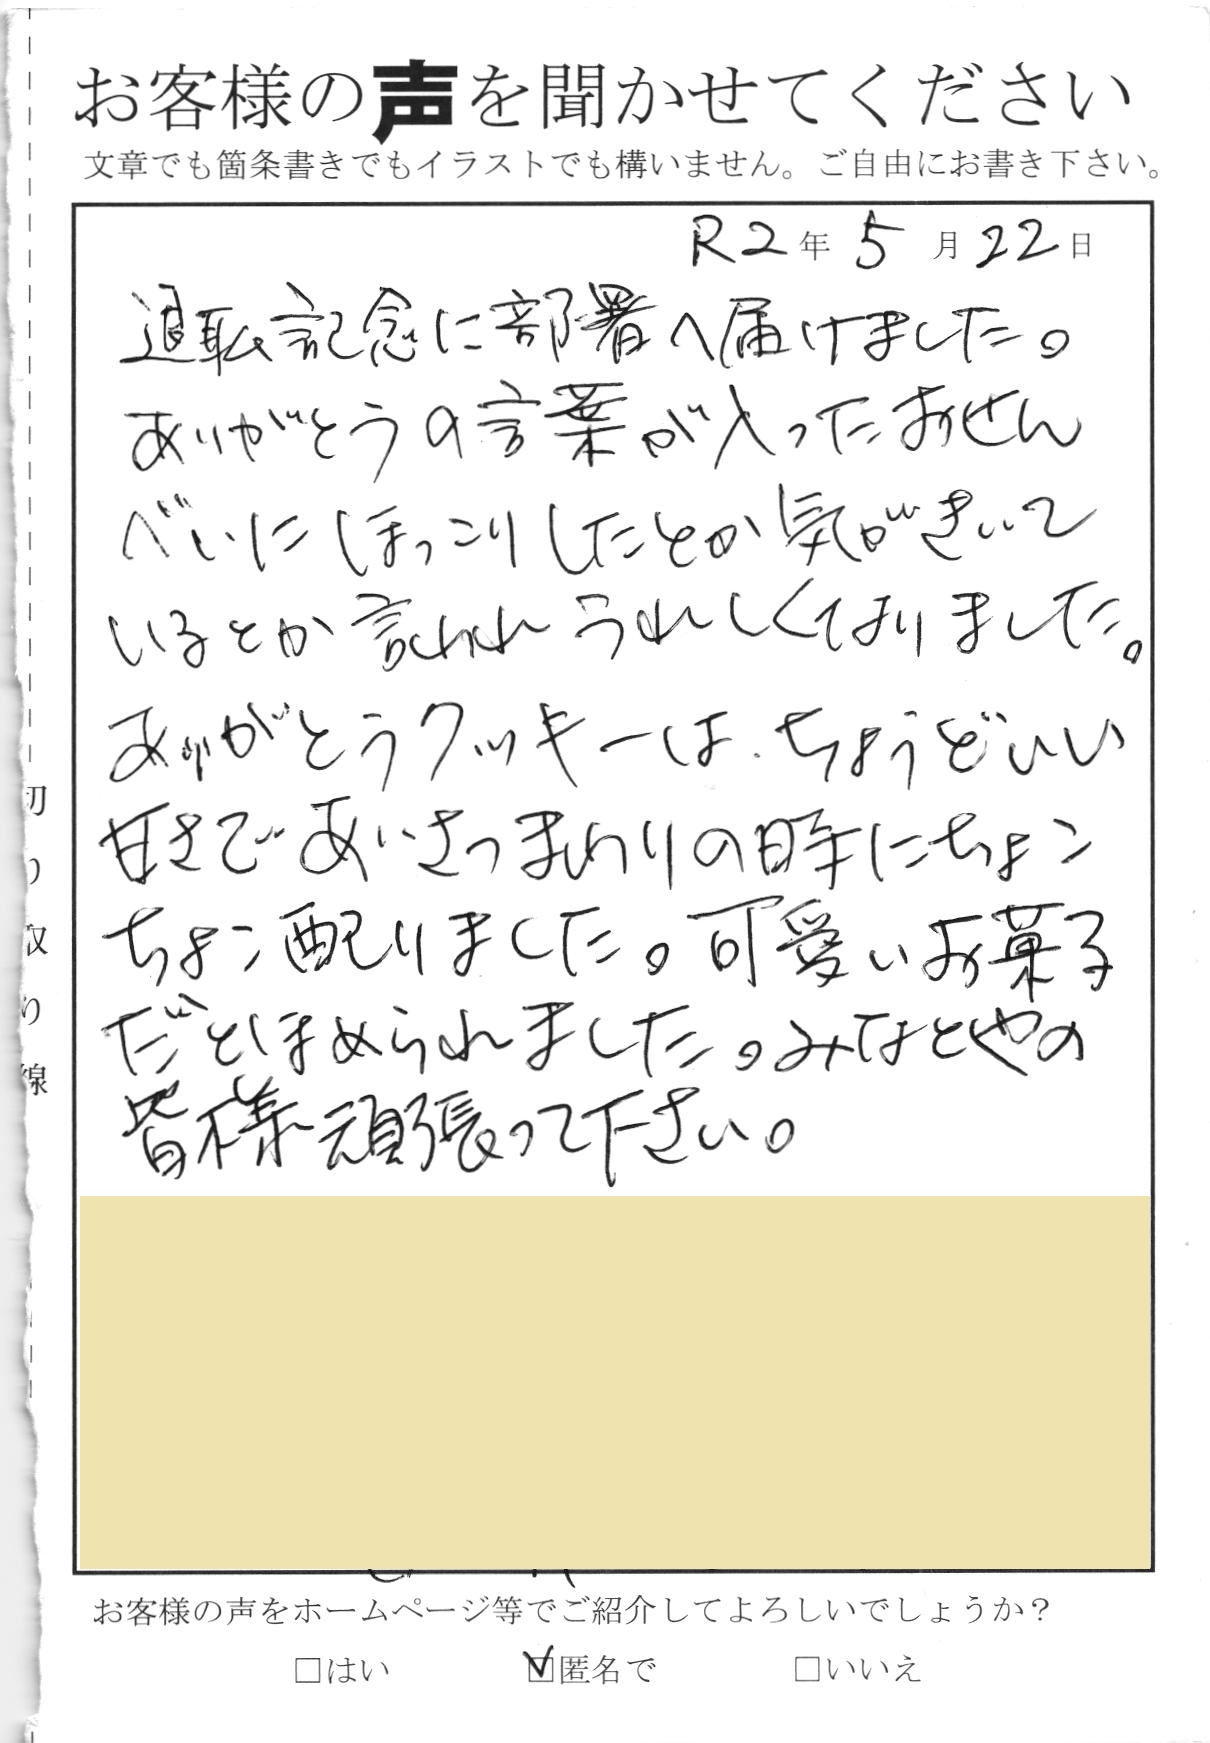 お客様の声を聞かせてください
文章でも箇条書きでもイラストでも構いません。ご自由にお書き下さい。
R2年 5月22日
退転記念に部署へ届けました。
ありがとうの言葉が入ったおせん
べいにほっこりしたとか気がきいて
いるとか言われうれしくなりました。
ありがとうクッキーは、ちょうどいい
甘さであいさつまわりの時にちょこ
ちょこ配りました。可愛いお菓子
だとほめられました。みなとやの
皆様頑張って下さい。
切り取り線
お客様の声をホームページ等でご紹介してよろしいでしょうか？
□はい ☑匿名で □いいえ